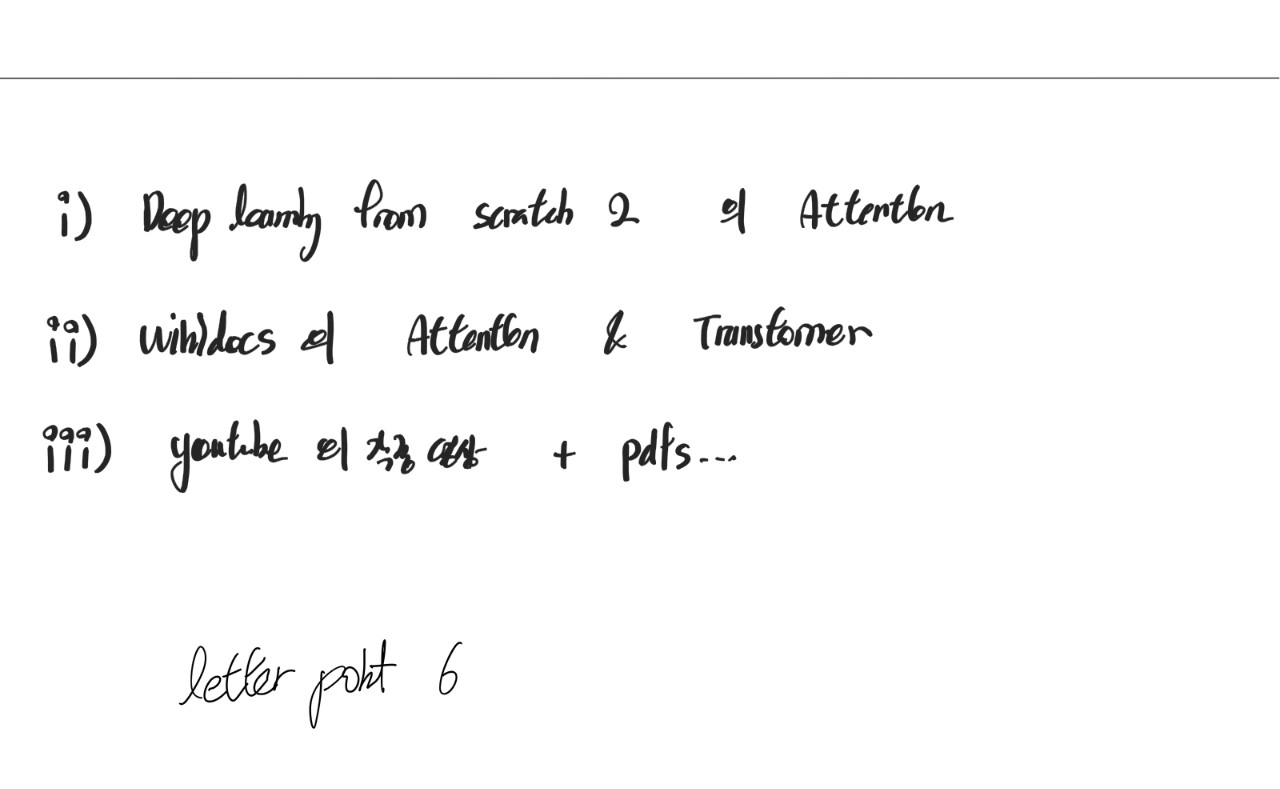 i) Deep learning from scratch 2 의 Attention
ii) wikidocs 의 Attention & Transformer
iii) youtube 의 각종 영상 + pdfs...
letter point 6